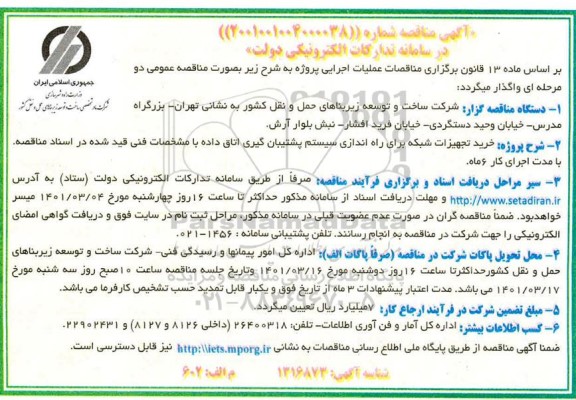 «آگهی مناقصه شماره ((۲۰۰۱۰۰۱۰۰۴۰۰۰۰۳۸))
در سامانه تدارکات الکترونیکی دولت»
جمهوری اسلامی ایران
وزارت راه و شهرسازی
بر اساس ماده ۱۳ قانون برگزاری مناقصات عملیات اجرایی پروژه به شرح زیر بصورت مناقصه عمومی دو
مرحله ای واگذار میگردد:
۱- دستگاه مناقصه گزار: شرکت ساخت و توسعه زیربناهای حمل و نقل کشور به نشانی تهران- بزرگراه
مدرس- خیابان وحید دستگردی- خیابان فرید افشار- نبش بلوار آرش.
۲- شرح پروژه: خرید تجهیزات شبکه برای راه اندازی سیستم پشتیبان گیری اتاق داده با مشخصات فنی قید شده در اسناد مناقصه.
با مدت اجرای کار ۶ماه.
۳- سیر مراحل دریافت اسناد و برگزاری فرآیند مناقصه: صرفاً از طریق سامانه تدارکات الکترونیکی دولت (ستاد) به آدرس
http://www.setadiran.ir و مهلت دریافت اسناد از سامانه مذکور حداکثر تا ساعت ۱۶روز چهارشنبه مورخ ۱۴۰۱/۰۳/۰۴ میسر
خواهدبود. ضمناً مناقصه گران در صورت عدم عضویت قبلی در سامانه مذکور، مراحل ثبت نام در سایت فوق و دریافت گواهی امضای
الکترونیکی را جهت شرکت در مناقصه به انجام رسانند. تلفن پشتیبانی سامانه : ۱۴۵۶-۰۲۱
۴- محل تحویل پاکات شرکت در مناقصه (صرفاً پاکات الف): اداره کل امور پیمانها و رسیدگی فنی- شرکت ساخت و توسعه زیربناهای
حمل و نقل کشورحداکثرتا ساعت ۱۶روز دوشنبه مورخ ۱۴۰۱/۰۳/۱۶ وتاریخ جلسه مناقصه ساعت ۱۰صبح روز سه شنبه مورخ
۱۴۰۱/۰۳/۱۷ می باشد. مدت اعتبار پیشنهادات ۳ ماه از تاریخ فوق و یکبار قابل تمدید حسب تشخیص کارفرما می باشد.
۵- مبلغ تضمین شرکت در فرآیند ارجاع کار: ۷میلیارد ریال تعیین میگردد.
۶- کسب اطلاعات بیشتر: اداره کل آمار و فن آوری اطلاعات- تلفن: ۲۶۴۰۰۳۱۸ (داخلی ۸۱۲۶ و ۸۱۲۷) و ۲۲۹۰۲۴۳۱.
ضمنا آگهی مناقصه از طریق پایگاه ملی اطلاع رسانی مناقصات به نشانی http://iets.mporg.ir نیز قابل دسترسی است.
شناسه آگهی: ۱۳۱۶۸۷۳ م الف: ۶۰۲
ParsNamadData
۰۲۱-۸۸۳۴۹۶۷۰-۵